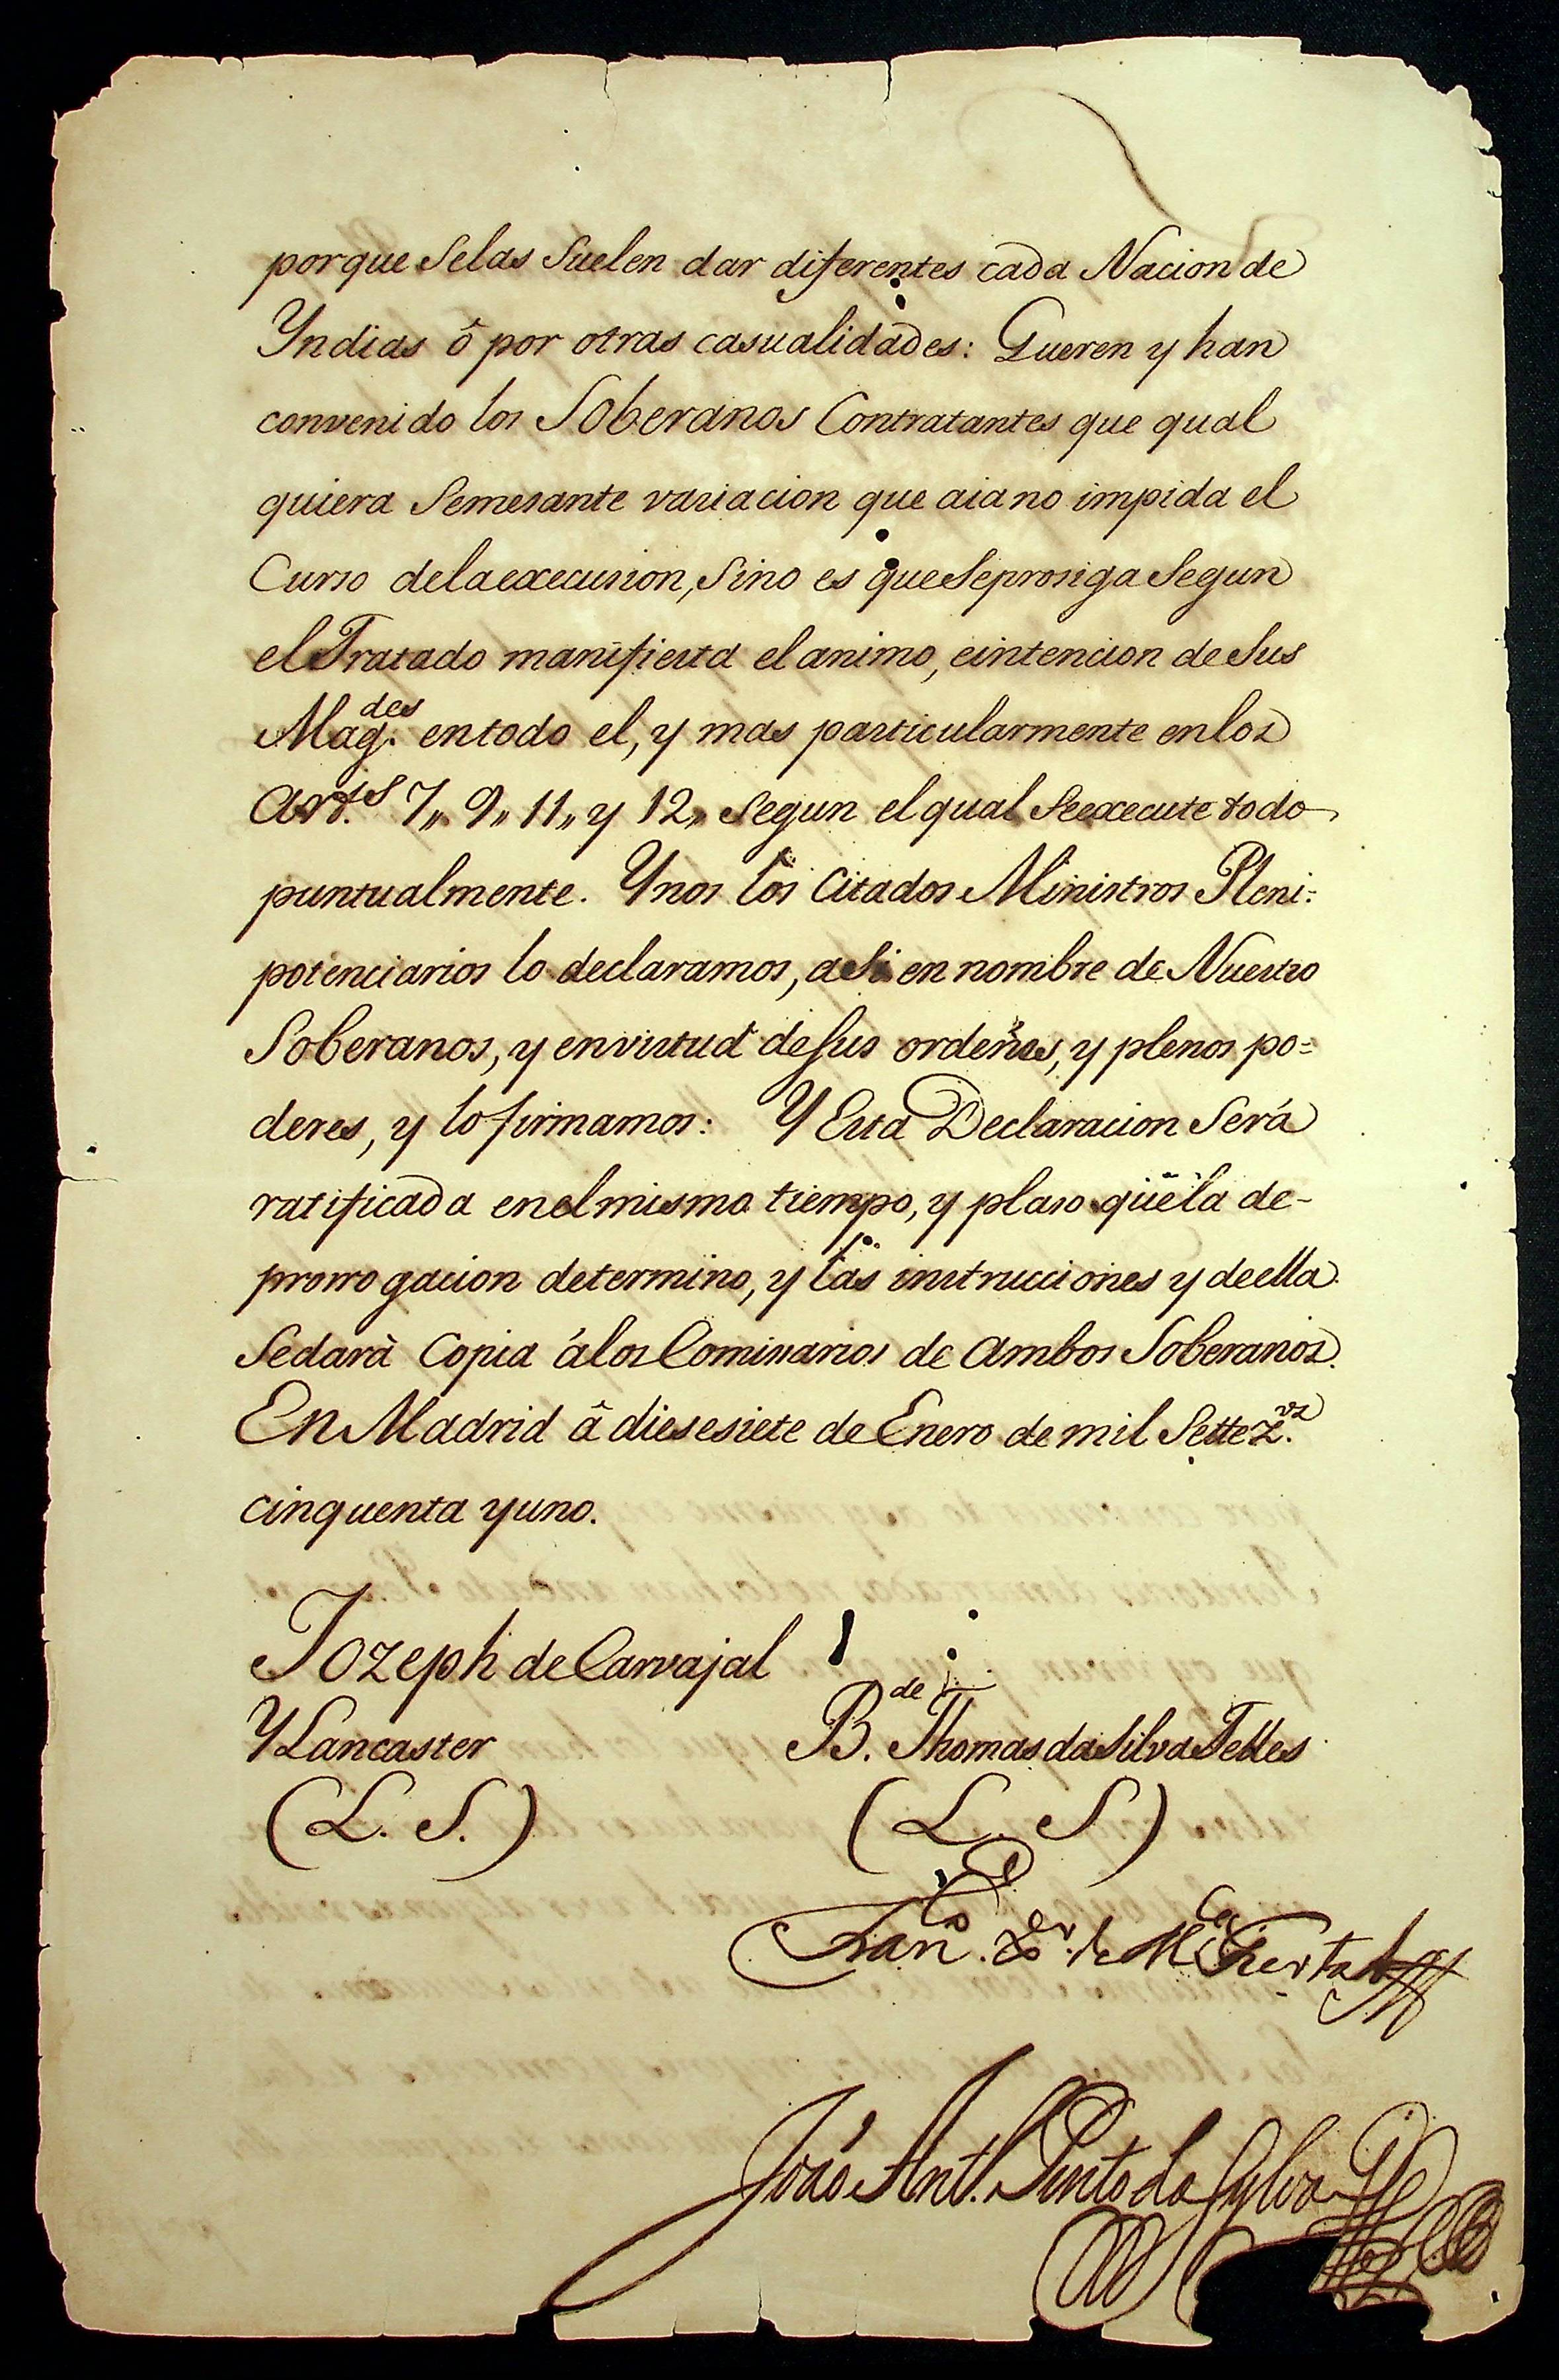 porque Selas Suelen dar diferentes cada Nacion de
Yndias ô por otras casualidades: Queren y han
convenido los Soberanos Contratantes que qual
quiera Semesante variacion que aia no impida el
Curso delaexecusion, Sino es queSeprosiga Segun
el Tratado manifiesta el animo, eintencion de Sus
Mag.des entodo el, y mas particularmente enlos
Art.s 7,, 9,, 11,, y 12,, Segun el qual Seexecute todo
puntualmente. Ynos los Citados Ministros Pleni:
potenciarios lo declaramos, aSi en nombre de Nuestro
Soberanos, y envirtud deSus ordenes, y plenos po=
deres, y lo firmamos: Y Esta Declaracion Será
ratificada enelmismo tiempo, y plaso que la de-
prorrogacion determino, y las instrucciones y deella
Sedarà Copia álos Comissarios de Ambos Soberanos.
En Madrid â diesesiete de Enero de mil Settez.os
cinquenta yuno.
Jozeph de Carvajal
YLancaster
B.de Thomas da Silva Telles
(L. S.)
(L. S)
Fran.co
João Ant. Pinto da Sylva